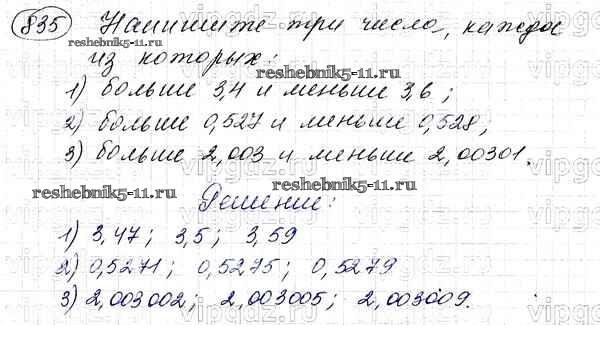 835 Напишите три числа, каждое
reshebnik5-11.ru
из которых:
reshebnik5-11.ru
1) больше 3,4 и меньше 3,6;
2) больше 0,527 и меньше 0,528;
3) больше 2,003 и меньше 2,00301.
reshebnik5-11.ru
reshebnik5-11.ru
Решение:
1) 3,47; 3,5; 3,59
2) 0,5271; 0,5275; 0,5279
3) 2,003002; 2,003005; 2,003009.
reshebnik5-11.ru